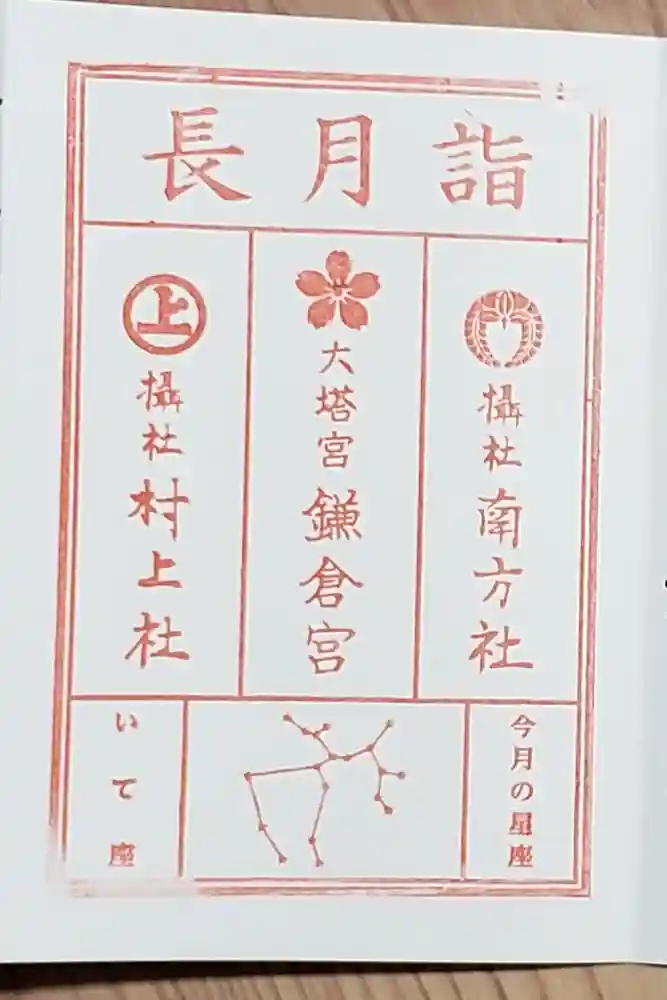 長月詣
上
攝社 村上社
大塔宮 鎌倉宮
攝社 南方社
いて座
今月の星座